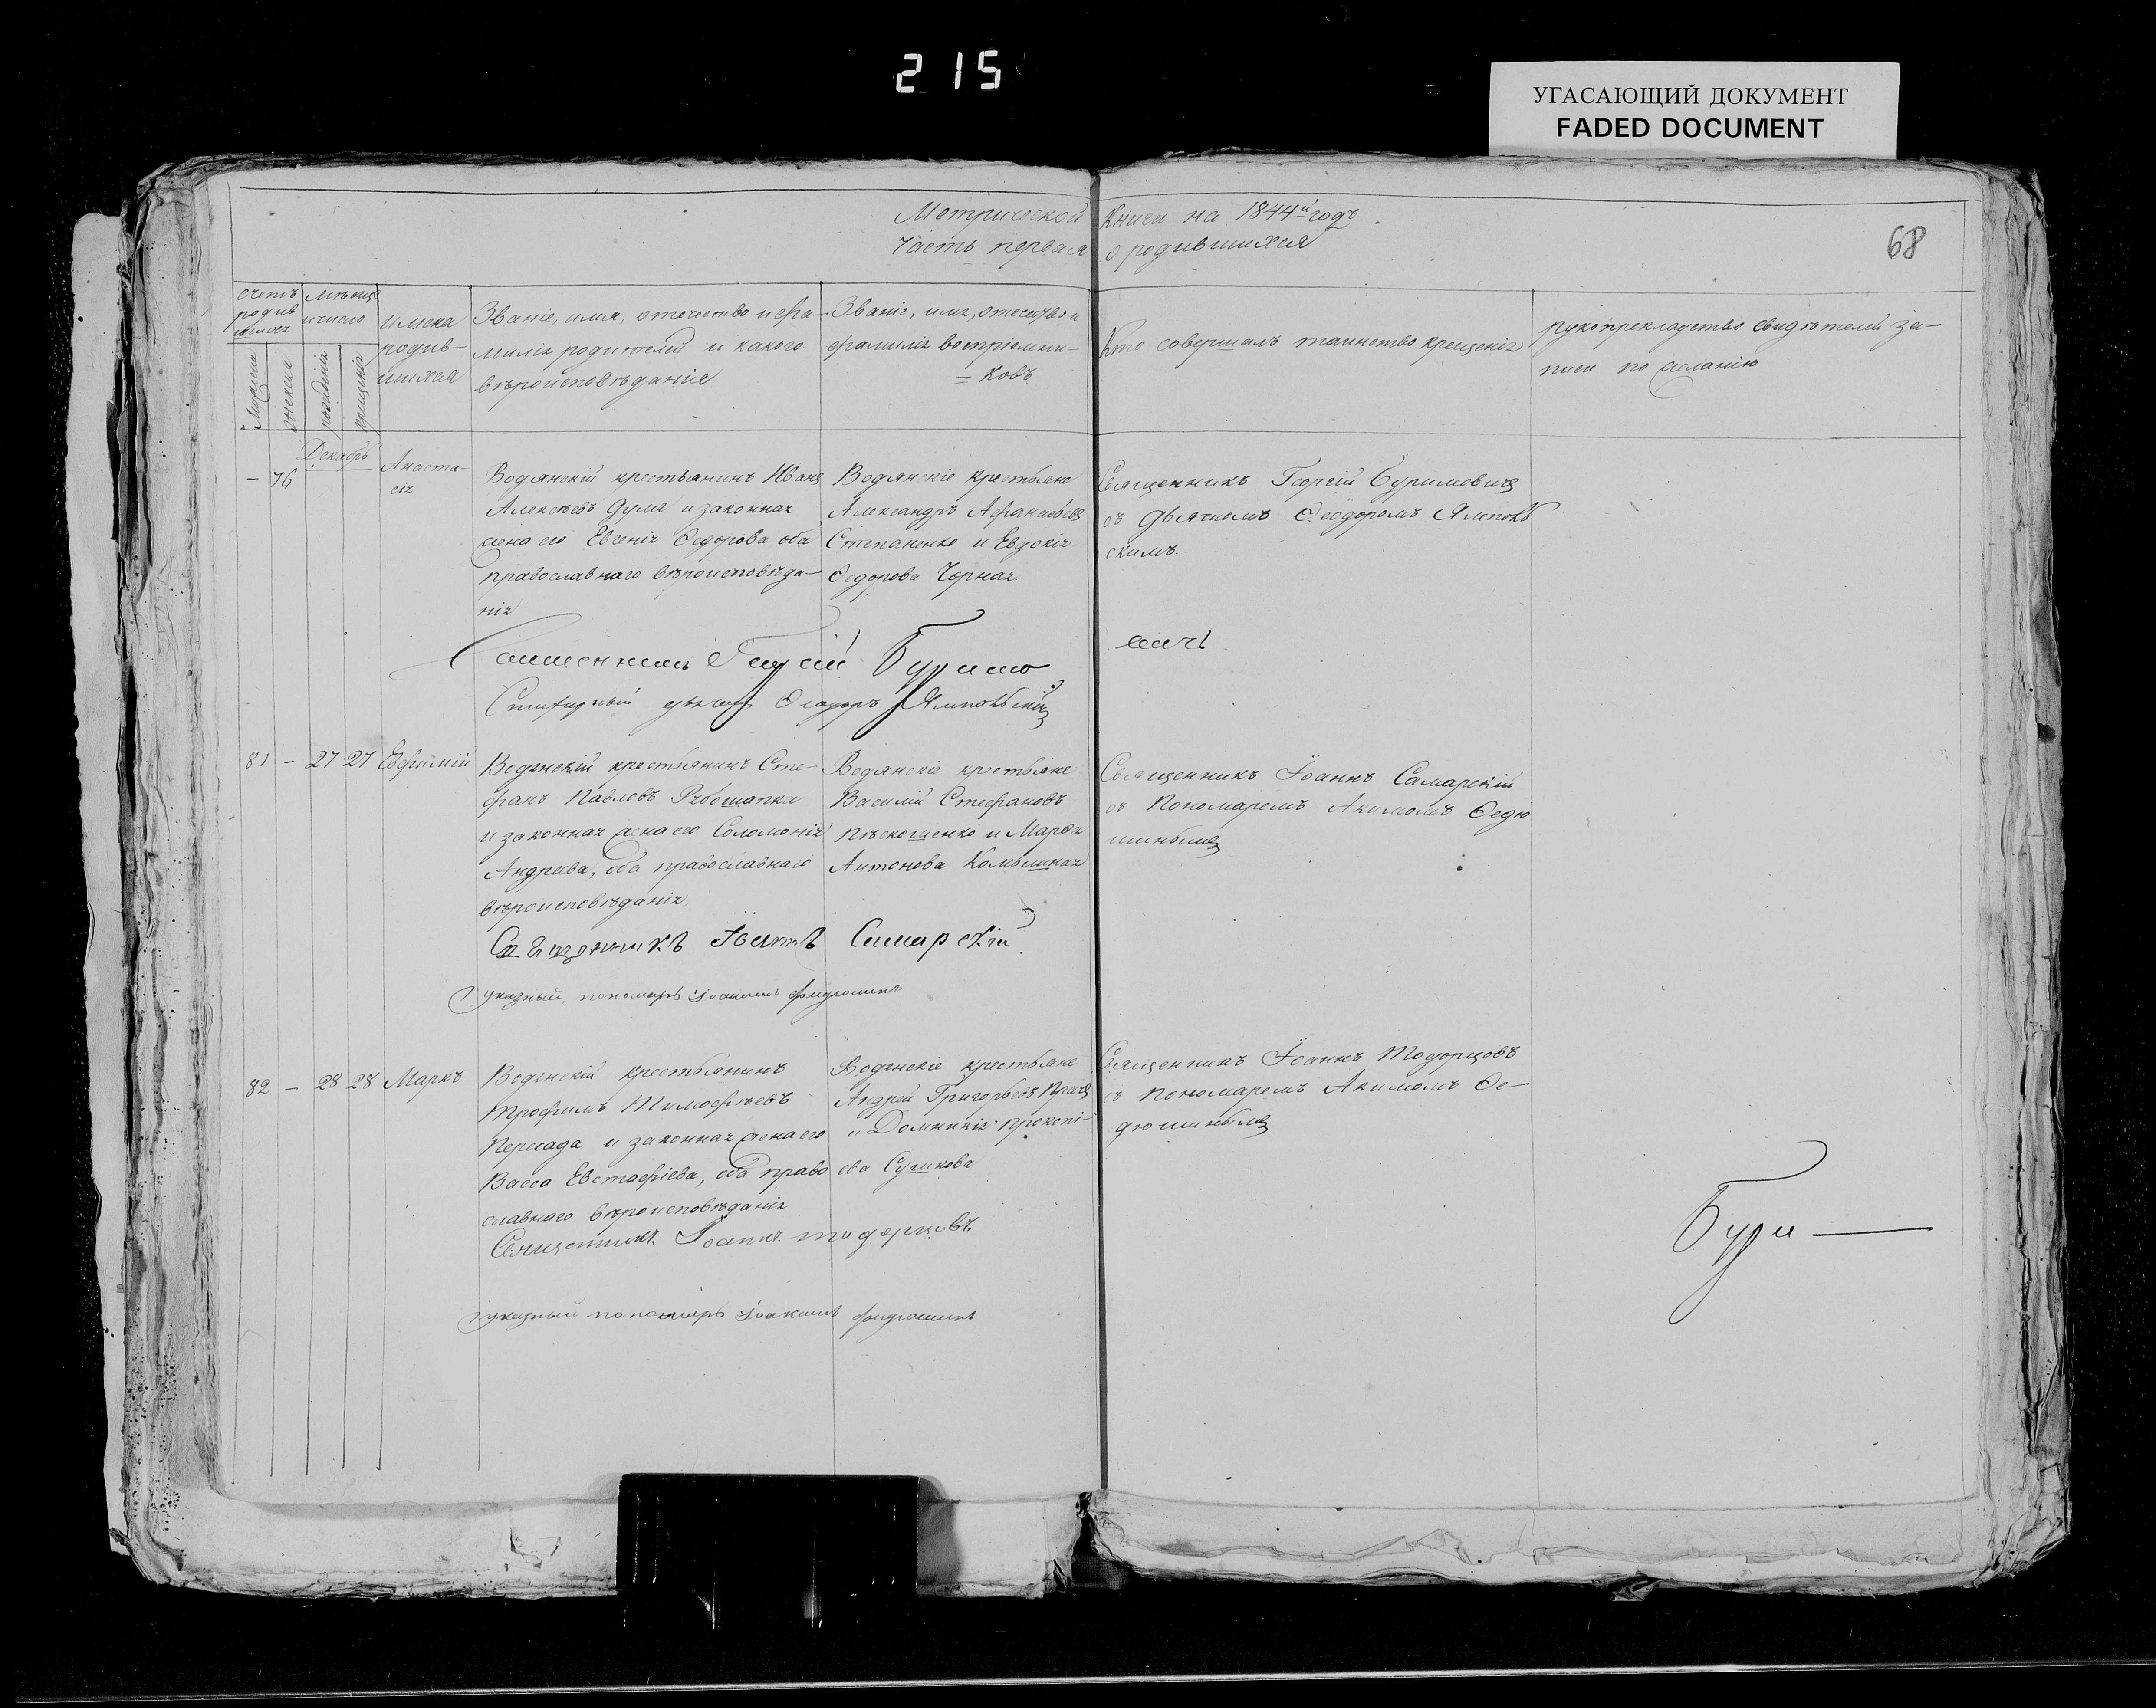 215
УГАСАЮЩИЙ ДОКУМЕНТ
FADED DOCUMENT
Метрической Книги на 1844й годъ.
Часть первая о родившихся
68
счетъ родившихся
мужеска
женска
мѣсяцъ и число
рожденія
крещенія
имена
родив-
шихся
Званіе, имя, отечество и фа-
милія родителей и какого
вѣроисповѣданія
Званіе, имя, отечество и
фамилія воспріемни-
= ковъ
Кто совершалъ таинство крещенія
рукоприкладство свидѣтелей за-
писи по желанію
Декабрь
- 76
Анаста-
сія
Водянскій крестьянинъ Иванъ
Алексѣевъ Дума и законная
жена его Евгенія Ѳедорова оба
православнаго вѣроисповѣда-
нія
Водянскіе крестьяне
Александръ Афанасьевъ
Степаненко и Евдокія
Ѳедорова Чорная.
Священникъ Георгій Буримовичъ
съ Дьячкомъ Ѳеодоромъ Ямполь
скимъ.
Священникъ Георгій Буримо
вичъ
дьячокъ Ѳеодоръ Ямпольскій
81 - 27 27 Евфимій
Водянскій крестьянинъ Сте-
фанъ Павловъ Рябошапка
и законная жена его Соломонія
Андреева, оба православнаго
вѣроисповѣданія.
Водянскіе крестьяне
Василій Стефановъ
Пѣскошенко и Марфа
Антонова Комышная
Священникъ Іоаннъ Самарскій
съ Пономаремъ Акимомъ Ѳедю
шинымъ
Священникъ Іоаннъ Самарскій
указный пономарь Іоакимъ Федюшинъ
82 - 28 28 Маркъ
Водянскій крестьянинъ
Трофимъ Тимофѣевъ
Пересада и законная жена его
Васса Евстафіева, оба право
славного вѣроисповѣданія
Водянскіе крестьяне
Андрей Григорьевъ Прачъ
и Домникія Прокопі-
ева Сушкова
Священникъ Іоаннъ Тодорцовъ
съ Пономаремъ Акимомъ Ѳе-
дюшинымъ
Священникъ Іоаннъ Тодорцовъ.
указный пономарь Іоакимъ Федюшинъ
Бури